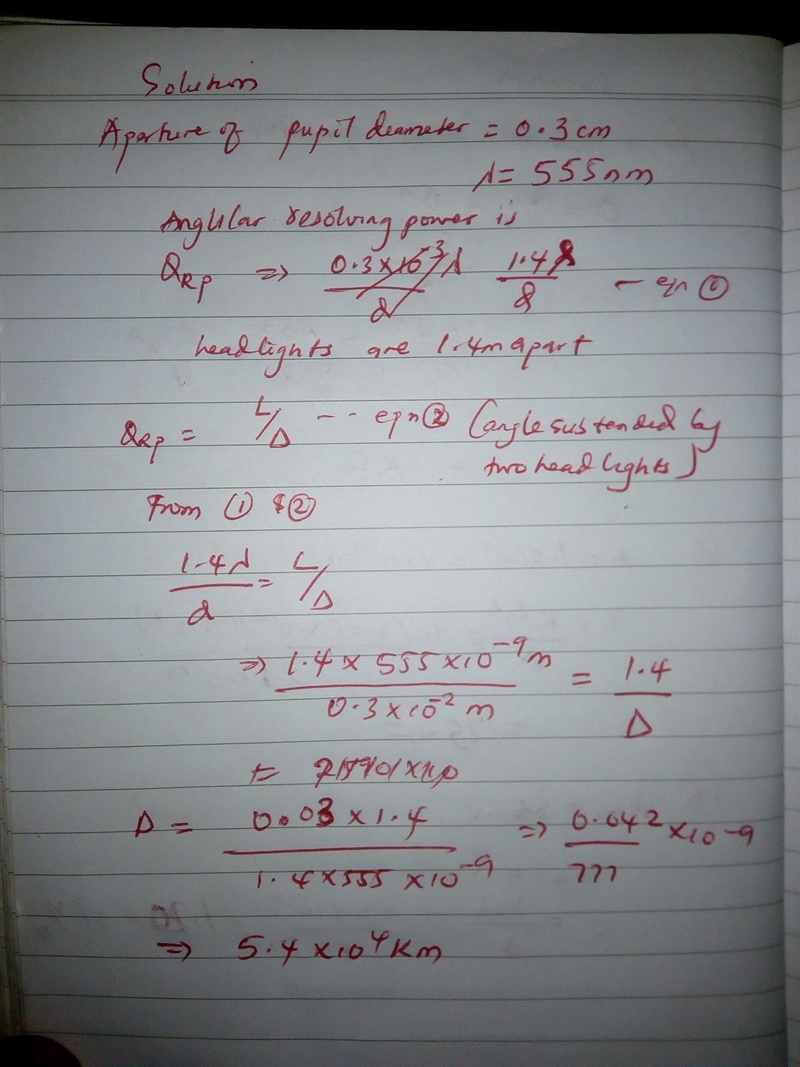 Solution
Aperture of pupil diameter = 0.3cm
λ = 555nm
Angular resolving power is
θRp ⇒ 1.4λ/d — eqn ①
headlights are 1.4m apart
θRp = L/D -- eqn ② (angle subtended by
two headlights)
From ① & ②
1.4λ/d = L/D
⇒ 1.4 × 555 × 10⁻⁹ m / 0.3 × 10⁻² m = 1.4 / D
D = 0.03 × 1.4 / 1.4 × 555 × 10⁻⁹ ⇒ 0.042 × 10⁻⁹ / 777
⇒ 5.4 × 10⁴ Km